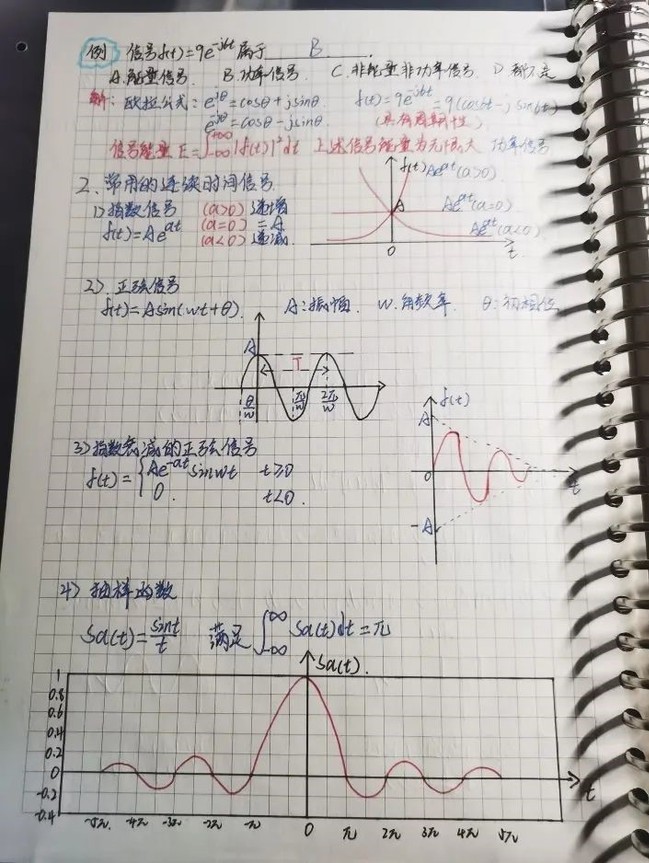 例 信号f(t)=9e^-j6t属于 B .
A.能量信号 B.功率信号. C.非能量非功率信号 D 都不是
解:欧拉公式:e^jθ=cosθ+jsinθ f(t)=9e^-j6t=9(cos6t-jsin6t)
e^jθ=cosθ-jsinθ (具有周期性)
信号能量E=∫-∞+∞|f(t)|²dt 上述信号能量为无限大 功率信号
2、常用的连续时间信号
1)指数信号 (a>0)递增
f(t)=Ae^at (a=0)=A
(a<0)递减
f(t) Ae^at(a>0)
A Ae^at(a=0)
Ae^at(a<0)
0 t
2)、正弦信号
f(t)=Asin(wt+θ). A:振幅. W.角频率. θ:初相位
A T
θ/w π/w 2π/w
3)指数衰减的正弦信号
f(t)={Ae^-at sinwt t≥0
0. t<0.
f(t)
A
0 t
-A
4)抽样函数
Sa(t)=sint/t 满足∫-∞∞Sa(t)dt=π
Sa(t).
1
0.8
0.6
0.4
0.2
0 t
-0.2
-0.4
-5π -4π -3π -2π -π 0 π 2π 3π 4π 5π